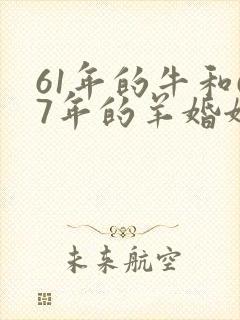 61年的牛和
7年的羊婚
未来航空